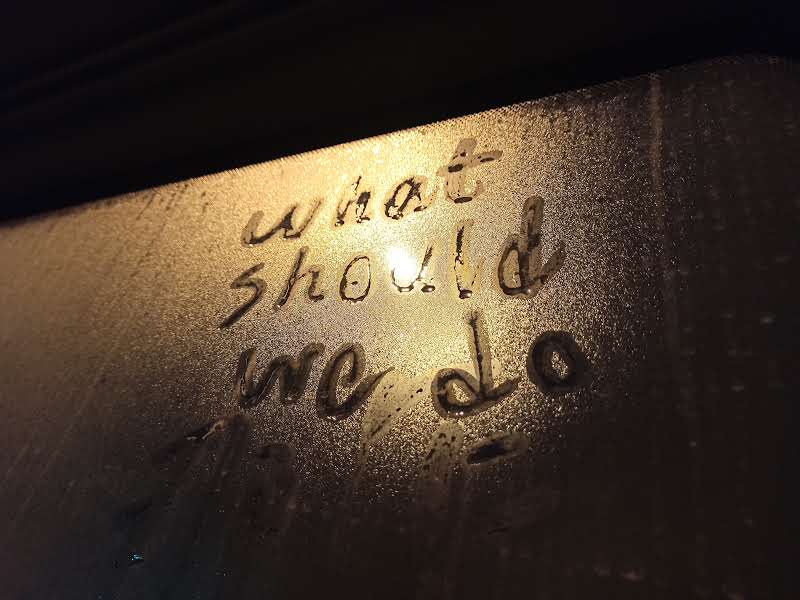 what
should
we do